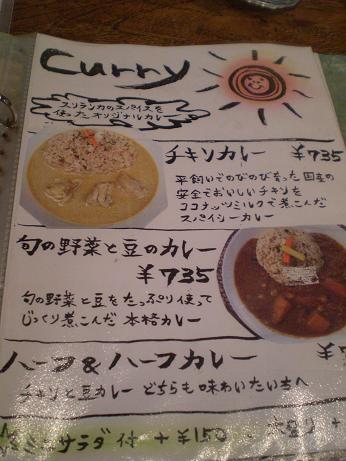 Curry
スリランカのスパイスを
使ったオリジナルカレー
チキンカレー ¥735
平飼いでのびのび育った国産の
安全でおいしいチキンを
ココナッツミルクで煮こんだ
スパイシーカレー
旬の野菜と豆のカレー
¥735
旬の野菜と豆をたっぷり使って
じっくり煮こんだ 本格カレー
ハーフ&ハーフカレー
チキンと豆カレー どちらも味わいたい方へ
ミニサラダ付 +¥150